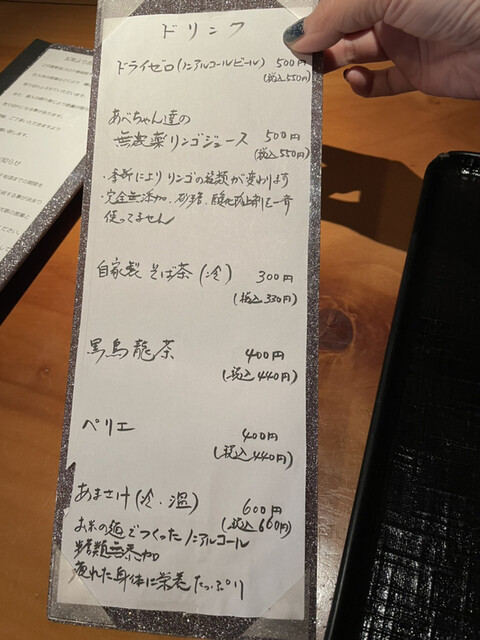 ドリンク
ドライゼロ(ノンアルコールビール) 500円
(税込550円)
あべちゃん達の
無農薬リンゴジュース 500円
(税込550円)
・季節によりリンゴの種類が変わります
・完全無添加、砂糖、酸化防止剤も一切
使ってません
自家製そば茶(冷) 300円
(税込330円)
黒烏龍茶 400円
(税込440円)
ペリエ 400円
(税込440円)
あまさけ(冷・温) 600円
(税込660円)
お米の麹でつくったノンアルコール
糖類無添加
疲れた身体に栄養たっぷり